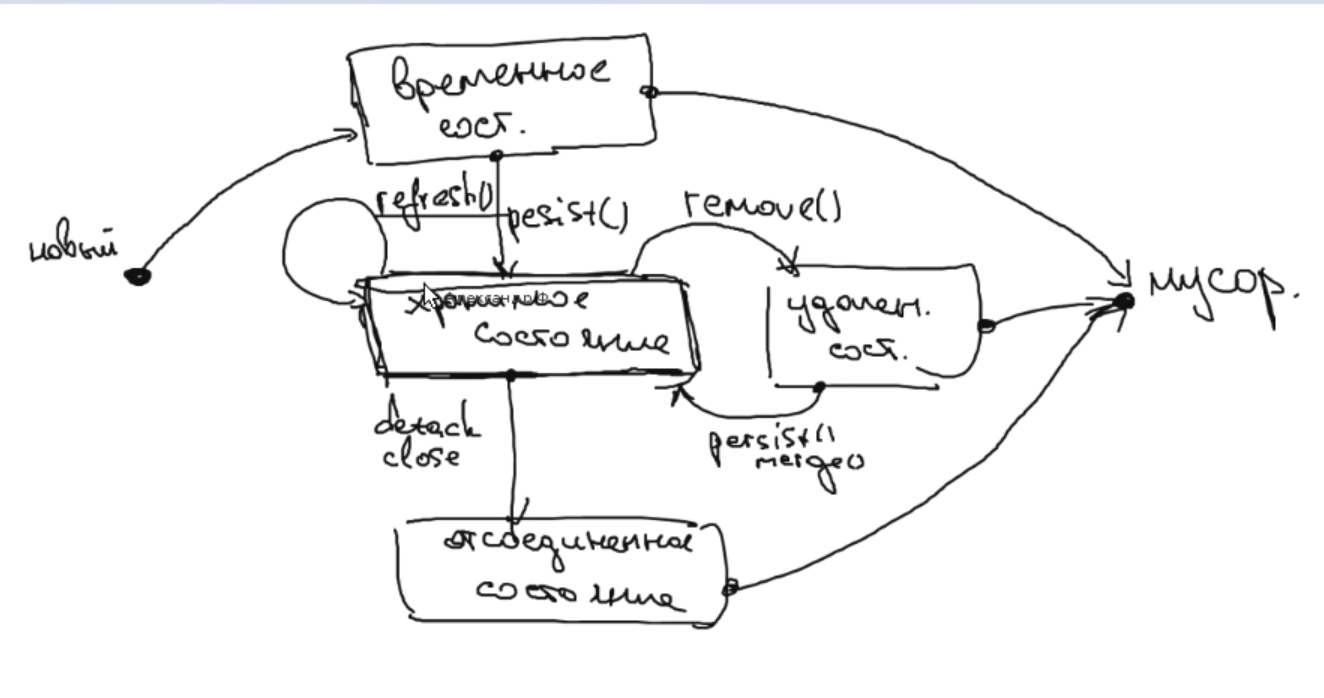 временное
сост.
refresh()
pesist()
remove()
новый
мусор.
состояние
удален.
сост.
detach
close
persist()
merge()
отсоединенное
состояние